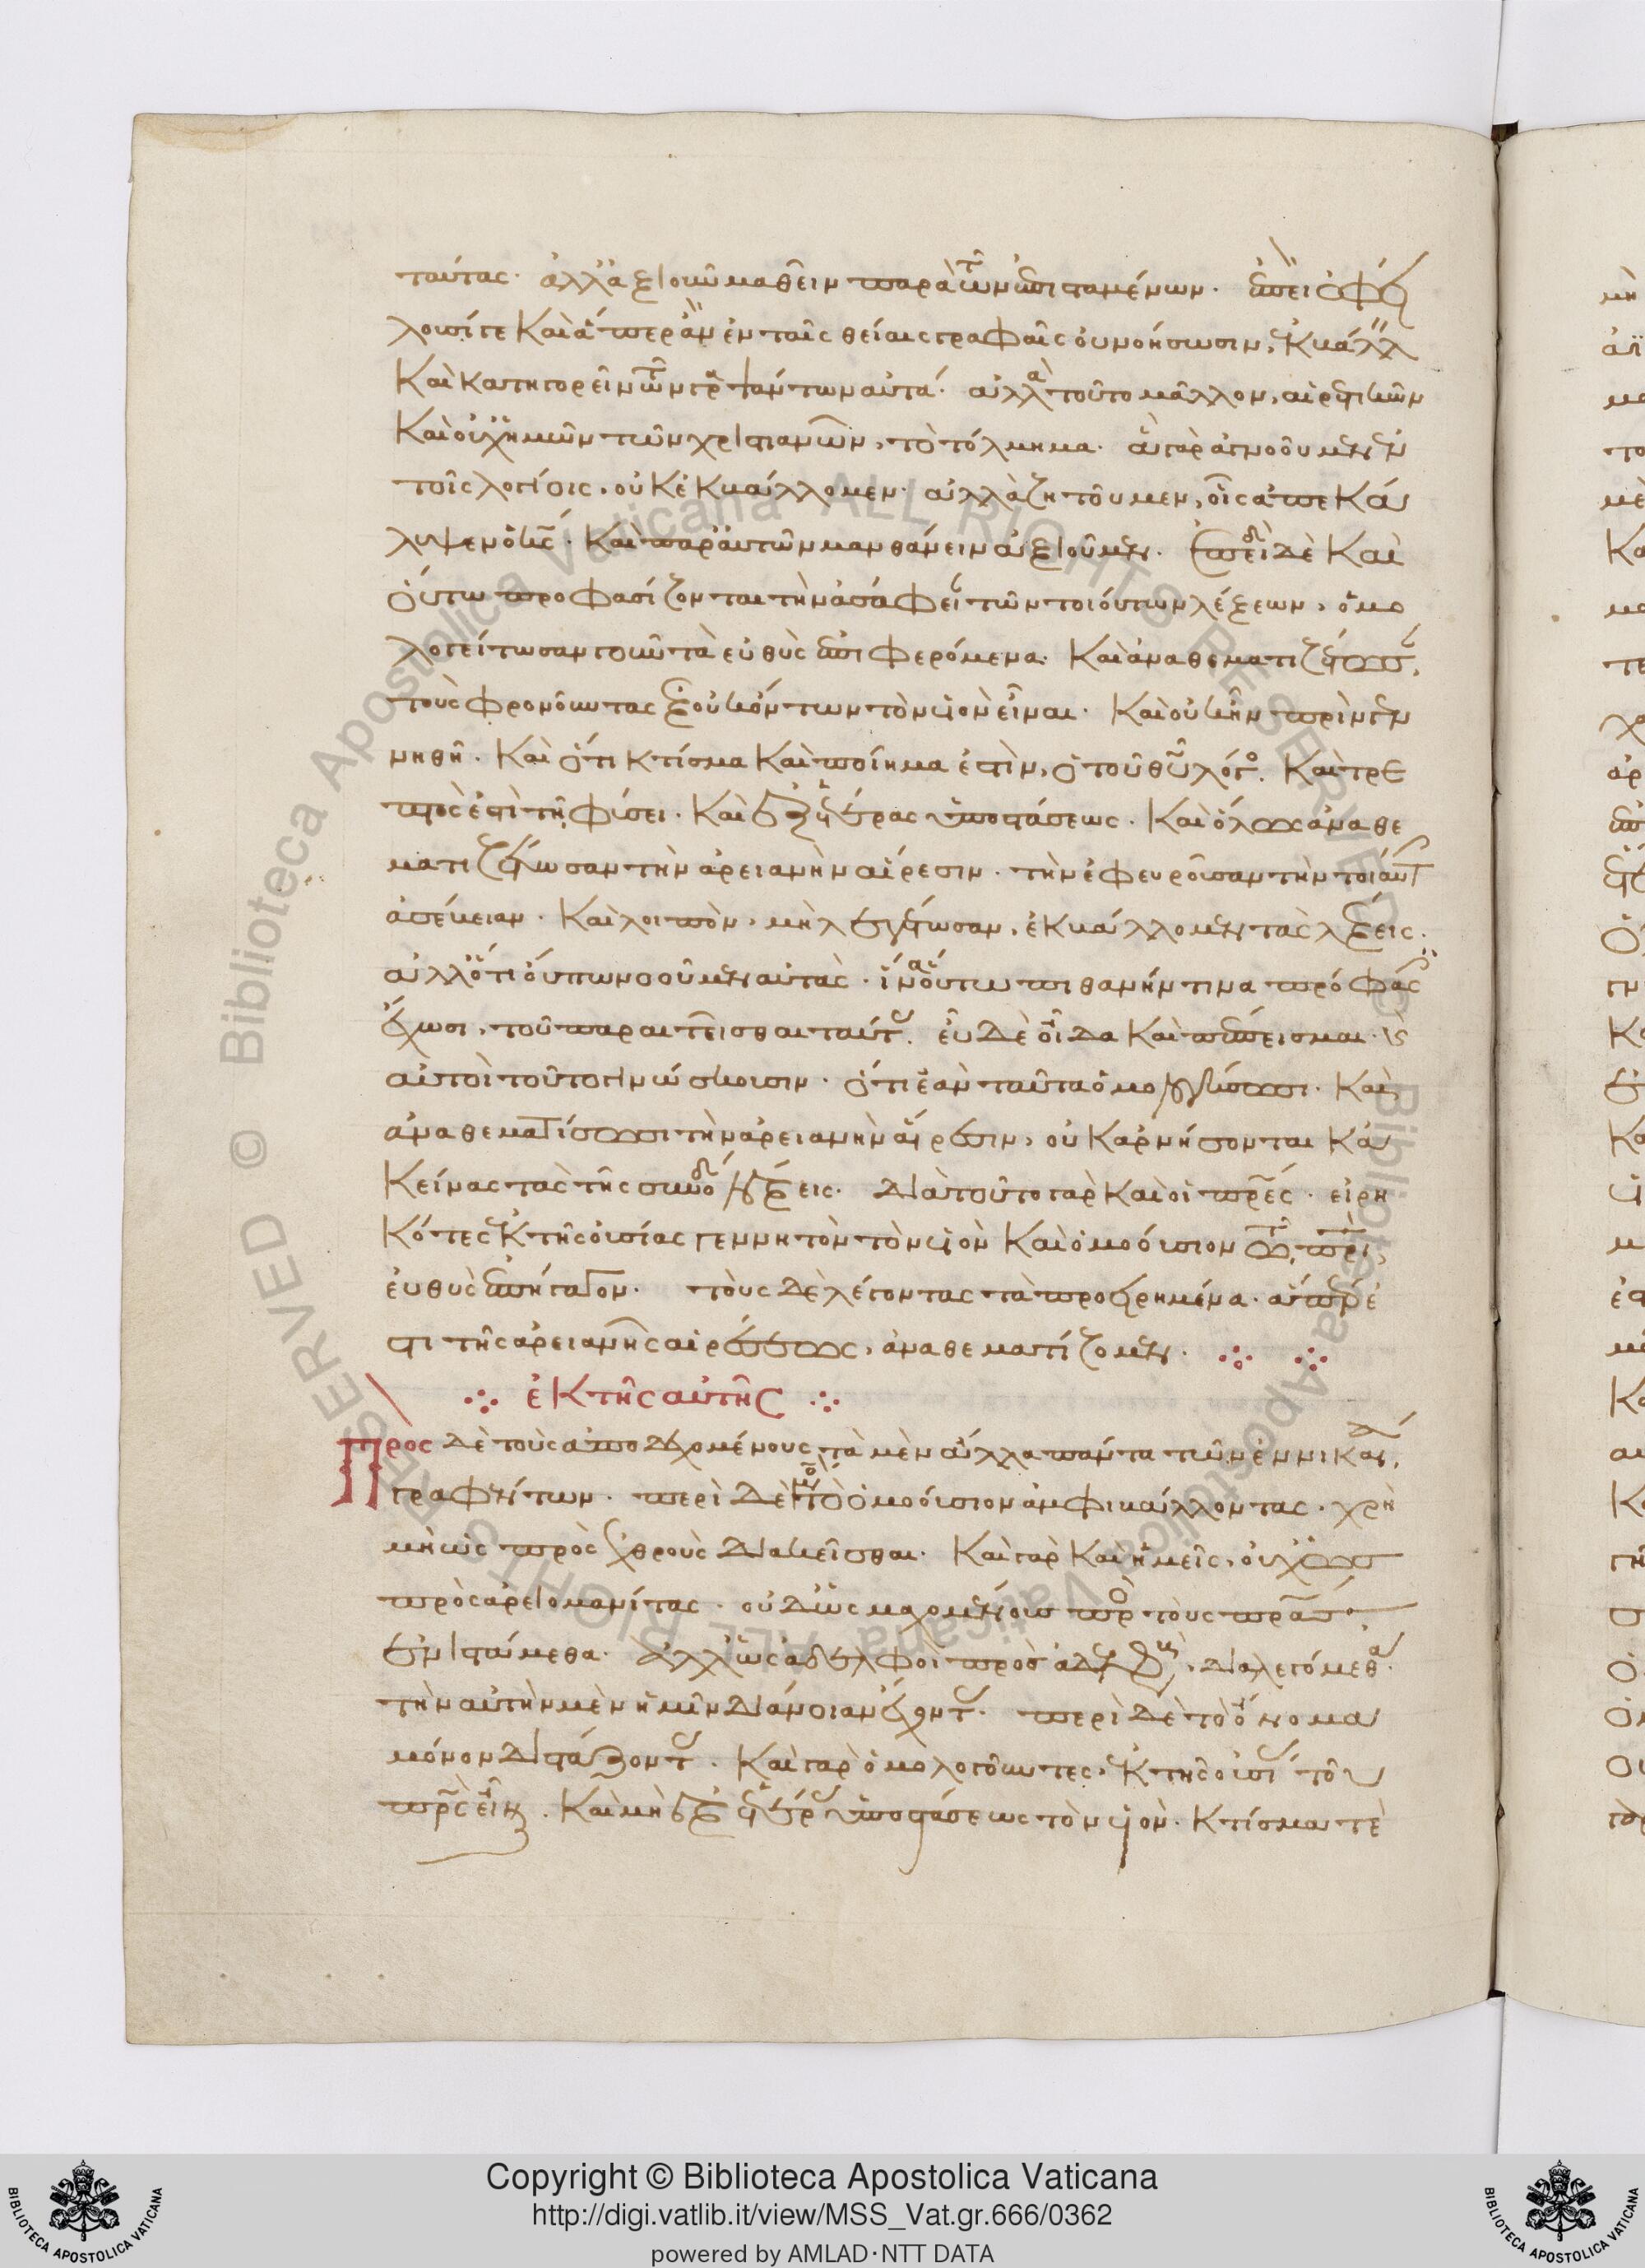 ταύτας· ἀλλ' ἀξιοῦν μαθεῖν παρὰ τῶν ἐπισταμένων· ἐπεὶ ὀφεί
λουσί γε καὶ ἅπερ ἂν ἐν ταῖς θείαις γραφαῖς οὐ νοήσωσιν, ἐκβάλλ
καὶ κατηγορεῖν τῶν γραψάντων αὐτά· ἀλλὰ τοῦτο μᾶλλον, αἱρετικῶν
καὶ οὐχ ἡμῶν τῶν χριστιανῶν, τὸ τόλμημα· ἃ γὰρ ἀγνοοῦμεν ἐν
τοῖς λογίοις, οὐκ ἐκβάλλομεν· ἀλλὰ ζητοῦμεν, οἷς ἀπεκά
λυψεν ὁ κς· καὶ παρ' αὐτῶν μανθάνειν ἀξιοῦμεν· ἐπειδὴ δὲ καὶ
οὕτω προφασίζονται τὴν ἀσάφει τῶν τοιούτων λέξεων, ὁμο
λογείτωσαν γοῦν τὰ εὐθὺς ἐπιφερόμενα· καὶ ἀναθεματιζέτωσ,
τοὺς φρονοῦντας ἐξ οὐκ ὄντων τὸν υἱὸν εἶναι· καὶ οὐκ ἦν πρὶν γεν
νηθῆ· καὶ ὅτι κτίσμα καὶ ποίημα ἐστὶν, ὁ τοῦ θυ λόγος· καὶ τρε
πτός ἐστι τῆ φύσει· καὶ ἐξ ἑτέρας ὑποστάσεως· καὶ ὅλως ἀναθε
ματιζέτωσαν τὴν ἀρειανὴν αἵρεσιν· τὴν ἐφευροῦσαν τὴν τοιάυτ
ἀσέβειαν· καὶ λοιπὸν, μὴ λεγέτωσαν, ἐκβάλλομεν τὰς λέξεις·
ἀλλ' ὅτι οὔπω νοοῦμεν αὐτὰς· ἵνα οὕτω πιθανήν τινα πρόφασ
ἔχωσι, τοῦ παραιτεῖσθαι ταύτας· εὖ δὲ οἶδα καὶ πέπεισμαι·
αὐτοὶ τοῦτο γινώσκουσιν· ὅτι ἐὰν ταῦτα ὁμολογήσωσι· καὶ
ἀναθεματίσωσι τὴν ἀρειανὴν αἵρεσιν, οὐκ ἀρνήσονται κἀ
κείνας τὰς τῆς συνόδ λέξεις· Διὰ τοῦτο γὰρ καὶ οἱ πρες· εἰρη
κότες ἐκ τῆς οὐσίας γεννητὸν τὸν υἱὸν καὶ ὁμοούσιον τῶ πρι,
εὐθὺς ἐπήγαγον· τοὺς δὲ λέγοντας τὰ προειρημένα· ἅπερ ἐ
στι τῆς ἀρειανῆς αἱρέσεως, ἀναθεματίζομεν·
ἐκ τῆς αὐτῆς
Πρὸς δὲ τοὺς ἀποδεχομένους, τὰ μὲν ἄλλα πάντα τῶν ἐν νικαία,
γραφέντων· περὶ δὲ μόνον τὸ ὁμοούσιον ἀμφιβάλλοντας· χρὴ
μὴ ὡς πρὸς ἐχθροὺς διακεῖσθαι· καὶ γὰρ καὶ ἡμεῖς, οὐχ ὡς
πρὸς ἀρειομανίτας· οὐδ' ὡς μαχομένους πρὸς τοὺς πρας
ἐνιστάμεθα· ἀλλ' ὡς ἀδελφοὶ πρὸς ἀδελφοὺς, διαλεγόμεθα·
τὴν αὐτὴν μὲν ἡμῖν διάνοιαν ἔχοντας· περὶ δὲ τὸ ὄνομα
μόνον διστάζοντας· καὶ γὰρ ὁμολογοῦντες, ἐκ τῆς οὐσί τοῦ
πρς εἶναι· καὶ μὴ ἐξ ἑτέρας ὑποστάσεως τὸν υἱὸν· κτίσμά τε
Copyright © Biblioteca Apostolica Vaticana
http://digi.vatlib.it/view/MSS_Vat.gr.666/0362
powered by AMLAD·NTT DATA